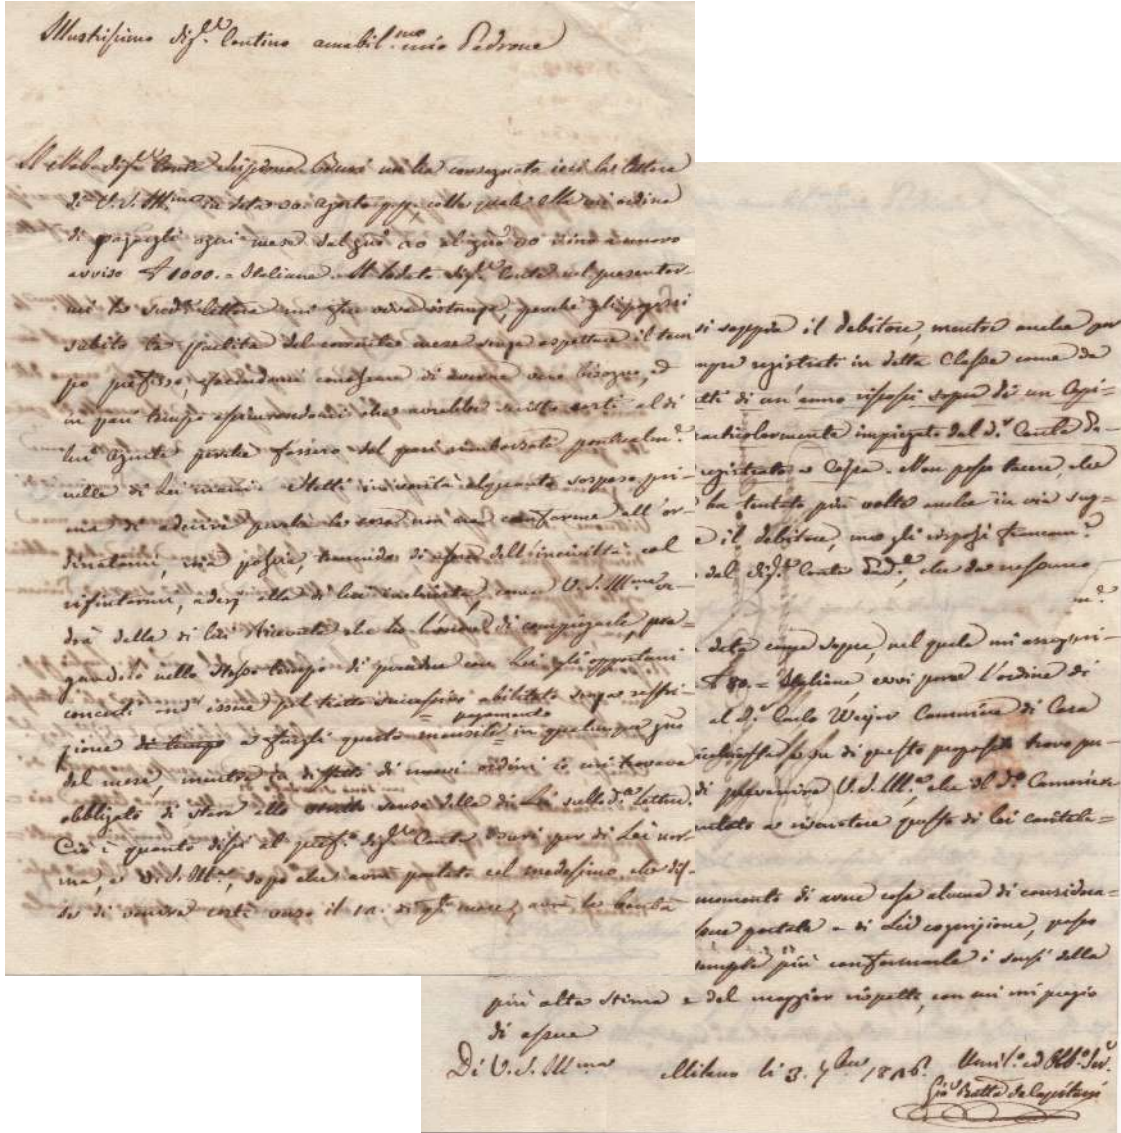 Illustrissimo Sig.r Contino amabil.mo mio Padrone
Il Nob. Sig.r Conte mi ha consegnato ieri la Lettera
di V. S. Ill.ma in data 20. Agosto p.p. colla quale Ella mi ordina
di pagargli ogni mese dal giorno 20 al giorno 30 sino a nuovo
avviso 1000. Italiane. Il lodato Sig.r Conte nel presentar-
mi la sud.a Lettera mi fece viva istanza, perchè gli pagassi
subito la partita del corrente mese senza aspettare il tem
po prefisso, facendomi conoscere di averne vero bisogno, ed
in pari tempo assicurandomi che avrebbe scritto costì al di
Lui Agente perchè fossero del pari rimborsate puntualm.e
nelle di Lei mani. Stetti in verità alquanto sospeso pri-
ma di aderirvi perchè la cosa non era conforme all'or-
dinatomi, ma poscia, temendo di esser dell'inciviltà col
rifiutarmi, aderj alla di lui inchiesta, come V. S. Ill.ma ve-
drà dalla di lui Ricevuta che ho l'onore di compiegarle, pre-
gandola nello stesso tempo di prendere con Lui gli opportuni
concerti ond' essere pel tratto successivo abilitato senza restri-
pagamento
zione di tempo a fargli questo mensile in qualunque giorno
del mese, mentre in difetto di nuovi ordini io mi trovava
obbligato di stare allo senso della di Lei sudd.a Lettera.
Ciò è quanto dissi al pref.o Sig.r Conte per di Lei nor-
ma, e V. S. Ill.ma, dopo che avrà parlato col medesimo, che dis-
se di venire costì verso il 12. di q.to mese, avrà la bontà
si sappia il debitore, mentre anche per
registrati in detta Classe come da
di un'anno riscossi sopra di un Capi=
particolarmente impiegato dal d.o Conte Pa-
registrato a Cassa. Non posso tacere, che
ha tentato più volte anche in via sug-
e il debitore, ma gli risposi francam.e
dal Sig.r Conte Pad.e, che da nessuno
m.e
data come sopra, nel quale mi assegni-
80. = Italiane, eravi pure l'ordine di
al d.o Carlo Weyer Cameriere di Casa
su di questo proposito trovo pu-
di prevenire V. S. Ill.ma, che il d.o Cameriere
a riscuotere questo di lei capitale=
momento di avere cosa alcuna di considera=
portata a di Lei cognizione, passo
sempre più confermarle i sensi della
più alta stima e del maggior rispetto, con cui mi pregio
di essere
Di V. S. Ill.ma Milano li 3. 7bre 1816. Umil.o ed Obb.o Ser.e
Gio. Batta de Capitani